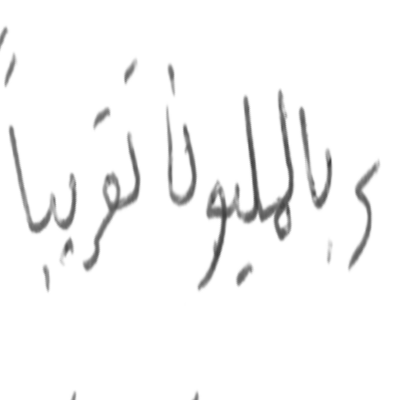 و بالمليون تقريباً